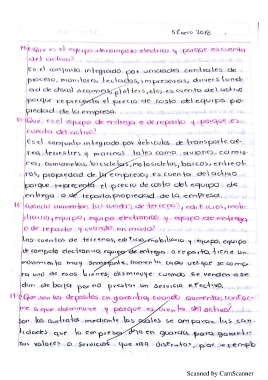 5 Enero 2018
14 ¿Que es el equipo de computo electrico y porque es cuenta
del activo?
Es el conjunto integrado por unidades centrales de
proceso, monitora, teclados, impresoras, drives, unida
des de disco, scanners, plotters, etc, es cuenta del activo
porque representa el precio de costo del equipo pro
piedad de la empresa.
15 ¿Que es el equipo de entrega o de reparto y porque es
cuenta del activo?
Es el conjunto integrado por vehiculos de transporte aé
reo, terrestres y maritimos tales como aviones, camio
nes, camionetas, bicicletas, motocicletas, barcos, entre ot
ros, propiedad de la empresa, es cuenta del activo
porque representa el precio de costo del equipo de
entrega o de reparto propiedad de la empresa.
16 ¿Cuando aumentan las ctas. de terrenos, edificios, mob
iliario, equipo, equipo electronico y equipo de entrega
o de reparto y cuando en menos?
Las cuentas de terrenos, edificio, mobiliario y equipo, equipo
de computo electronico, equipo de entrega o reparto, tiene un
movimiento muy semejante, aumenta cada vez que se compra
uno de esos bienes, disminuye cuando se venden o se
dan de baja por no prestar un servicio efectivo.
17 ¿Que son los depositos en garantia, cuando aumenta, confor
me a que disminuye y porque es cuenta del activo?
Son los contratos mediante los cuales se amparan las can
tidades que la empresa deja en guardia para garanti
zar valores o servicios que van disfrutar, por ejemplo
Scanned by CamScanner